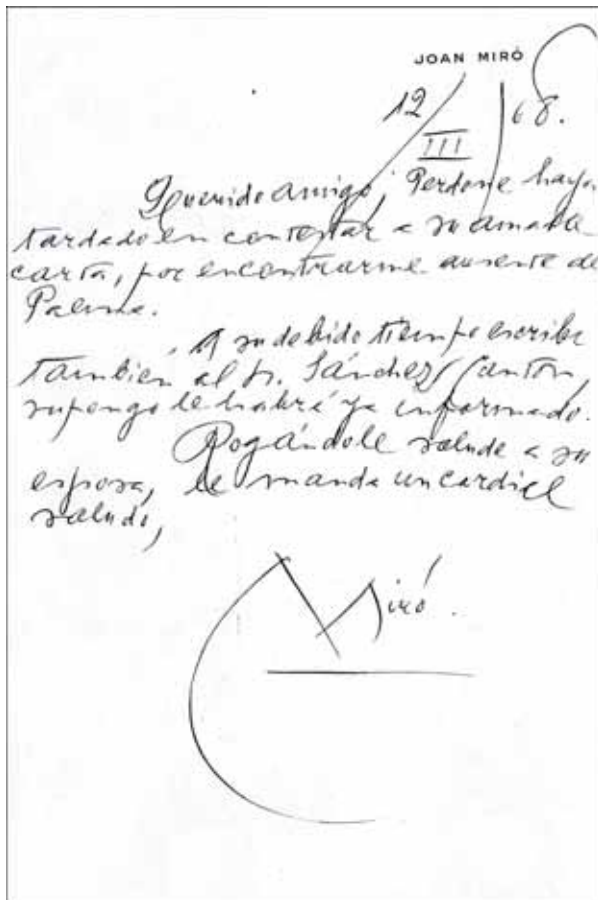 JOAN MIRÓ
12 / III / 68.
Querido amigo; Perdone haya
tardado en contestar a su amable
carta, por encontrarme ausente de
Palma.
A su debido tiempo escribí
también al Sr. Sánchez Cantón,
supongo le habrá ya informado.
Rogándole salude a su
esposa, le manda un cordial
saludo,
Miró.